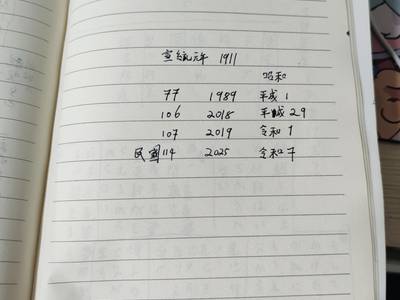 宣統元年 1911
昭和
77 1989 平成1
106 2018 平成29
107 2019 令和1
民國114 2025 令和7